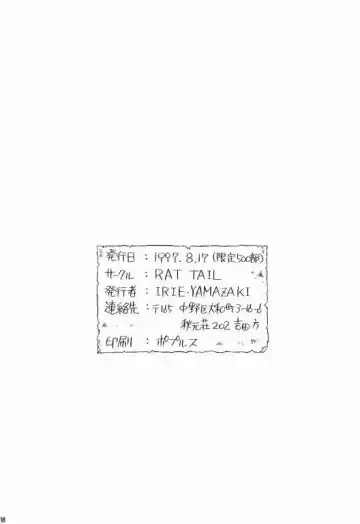 発行日 : 1997. 8. 17 (限定500部)
サークル : RAT TAIL
発行者 : IRIE・YAMAZAKI
連絡先 : 〒165 中野区大和町3-16-6
秋元荘202 吉田方
印刷 : ポプルス
18